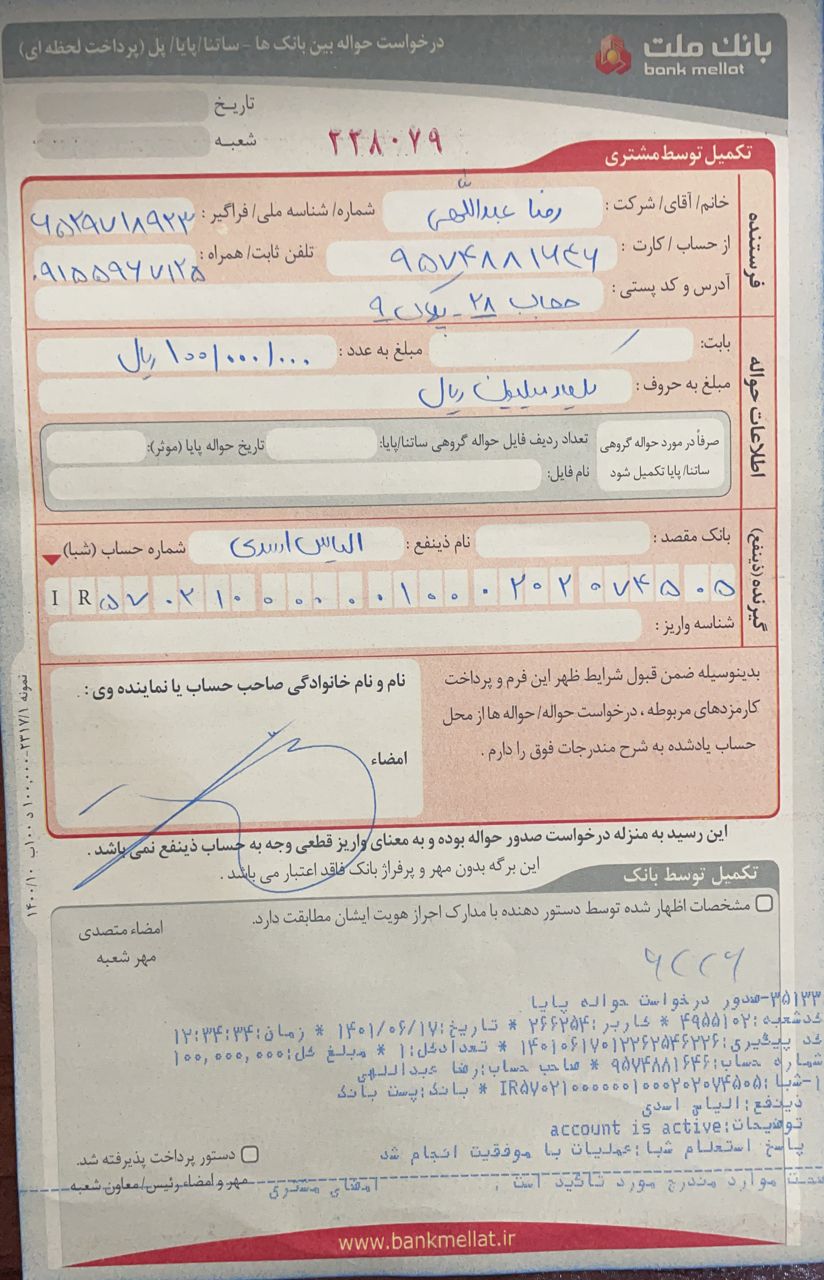 درخواست حواله بین بانک ها - ساتنا/پایا/ پل (پرداخت لحظه ای)
بانک ملت
bank mellat
تاریخ
شعبه
۲۲۸۰۷۹
تکمیل توسط مشتری
فرستنده
خانم/ آقای/ شرکت : رضا عبداللهی شماره/ شناسه ملی/ فراگیر : ۶۵۲۹۷۱۸۹۲۳
از حساب / کارت : ۹۵۷۴۸۸۱۶۴۶ تلفن ثابت/ همراه : ۰۹۱۵۵۹۶۷۱۲۵
آدرس و کد پستی : حجاب ۲۸ - پلاک ۹
اطلاعات حواله
بابت: مبلغ به عدد : ۱۰۰/۰۰۰/۰۰۰ ریال
مبلغ به حروف : یکصد میلیون ریال
صرفاً در مورد حواله گروهی
ساتنا/ پایا تکمیل شود
تعداد ردیف فایل حواله گروهی ساتنا/پایا: تاریخ حواله پایا (موثر):
نام فایل:
گیرنده (ذینفع)
بانک مقصد : نام ذینفع : الیاس اسدی شماره حساب (شبا)
IR ۵۷۰۲۱۰۰۰۰۰۰۰۱۰۰۰۲۰۲۰۷۴۵۰۵
شناسه واریز :
بدینوسیله ضمن قبول شرایط ظهر این فرم و پرداخت
کارمزدهای مربوطه ، درخواست حواله/ حواله ها از محل
حساب یادشده به شرح مندرجات فوق را دارم .
نام و نام خانوادگی صاحب حساب یا نماینده وی :
امضاء
این رسید به منزله درخواست صدور حواله بوده و به معنای واریز قطعی وجه به حساب ذینفع نمی باشد .
این برگه بدون مهر و پرفراژ بانک فاقد اعتبار می باشد .
تکمیل توسط بانک
مشخصات اظهار شده توسط دستور دهنده با مدارک احراز هویت ایشان مطابقت دارد.
امضاء متصدی
مهر شعبه
۳۵۱۳۳-صدور درخواست حواله پایا
کدشعبه:۴۹۵۵۱۰۲ * کاربر:۲۶۶۲۵۴ * تاریخ:۱۴۰۱/۰۶/۱۷ * زمان:۱۲:۳۴:۳۴
کد پیگیری:۱۴۰۱۰۶۱۷۰۱۲۲۶۲۵۴۶۲۲۶ * تعدادکل:۱ * مبلغ کل:۱۰۰,۰۰۰,۰۰۰
شماره حساب:۹۵۷۴۸۸۱۶۴۶ * صاحب حساب:رضا عبداللهی
۱-شبا:IR۵۷۰۲۱۰۰۰۰۰۰۰۱۰۰۰۲۰۲۰۷۴۵۰۵ * بانک:پست بانک
ذینفع:الیاس اسدی
توضیحات:account is active
پاسخ استعلام شبا:عملیات با موفقیت انجام شد
صحت موارد مندرج مورد تائید است . امضای مشتری
دستور پرداخت پذیرفته شد.
مهر و امضاء رئیس/ معاون شعبه
www.bankmellat.ir
نمونه ۲۳۱۷/۱-۱۰۰,۰۰۰ د ۱۰۰ب ۱۴۰۰/۱۰